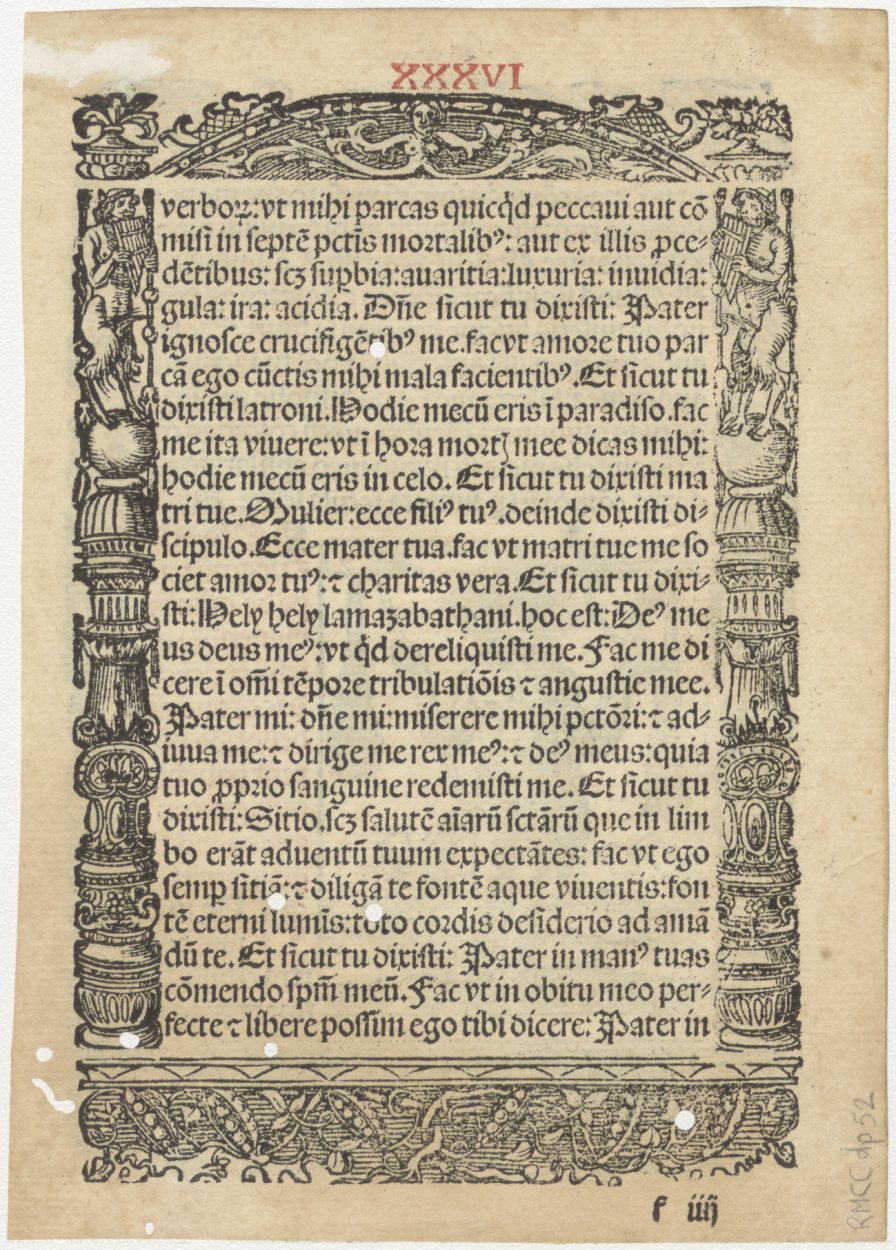 XXXVI
verboꝝ:vt mihi parcas quicq̇d peccaui aut cō
misi in septē pctīs mortalibꝰ: aut ex illis ꝓce⸗
dētibus: scꝫ suꝑbia:auaritia:luxuria: inuidia:
gula: ira: acidia. Dn̄e sicut tu dixisti: Pater
ignosce crucifigētibꝰ me.fac vt amore tuo par
cā ego cūctis mihi mala facientibꝰ.Et sicut tu
dixisti latroni.Hodie mecū eris ī paradiso.fac
me ita viuere:vt ī hora mortꝭ mee dicas mihi:
hodie mecū eris in celo. Et sicut tu dixisti ma
tri tue.Mulier:ecce filiꝰ tuꝰ.deinde dixisti di⸗
scipulo.Ecce mater tua.fac vt matri tue me so
ciet amor tuꝰ:⁊ charitas vera.Et sicut tu dixi⸗
sti:Hely hely lamazabathani.hoc est:Deꝰ me
us deus meꝰ:vt q̇d dereliquisti me.Fac me di
cere ī om̄i tēpore tribulatiōis ⁊ angustie mee.
Pater mi: dn̄e mi:miserere mihi pctōri:⁊ ad⸗
iuua me:⁊ dirige me rex meꝰ:⁊ deꝰ meus:quia
tuo ꝓprio sanguine redemisti me. Et sicut tu
dixisti:Sitio.scꝫ salutē aīarū sctārū que in lim
bo erāt aduentū tuum expectātes: fac vt ego
semꝑ sitiā:⁊ diligā te fontē aque viuentis:fon
tē eterni lumīs:toto cordis desiderio ad amā
dū te. Et sicut tu dixisti: Pater in manꝰ tuas
cōmendo spm̄ meū.Fac vt in obitu meo per⸗
fecte ⁊ libere possim ego tibi dicere: Pater in
f iiij
RMCC dp 52